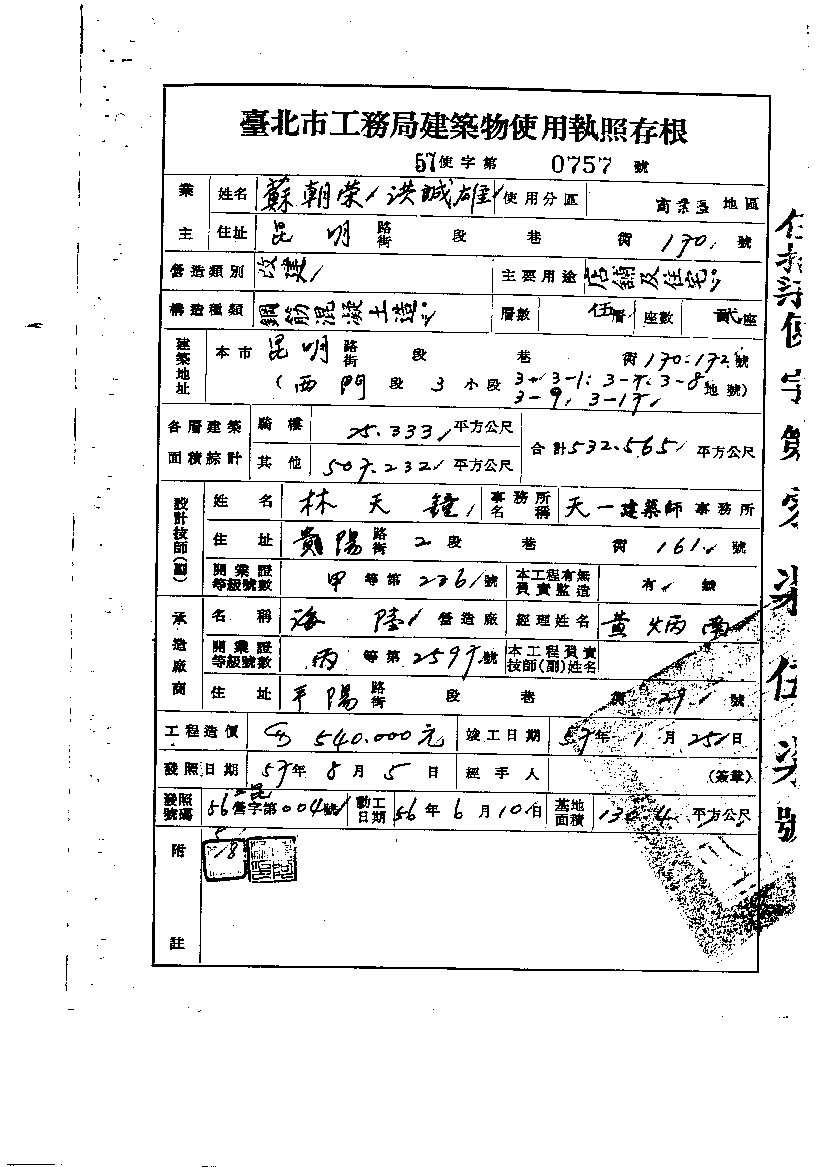 臺北市工務局建築物使用執照存根
57使字第 0757 號
業主 姓名 蘇朝榮 洪誠雄 使用分區 商業區 地區
住址 昆明 路街 段 巷 衖 170 號
營造類別 改建 主要用途 店鋪及住宅
構造種類 鋼筋混凝土造 層數 伍層 座數 貳座
建築地址 本市 昆明 路街 段 巷 衖 170.172 號
(西門 段 3 小段 3-1. 3-8 3-9 地號)
各層建築面積綜計 騎樓 25.333 平方公尺 合計 532.565 平方公尺
其他 507.232 平方公尺
設計技師(副) 姓名 林天鐘 事務所名稱 天一建築師事務所
住址 貴陽 路街 2 段 巷 衖 161 號
開業證等級號數 甲 等第 2261 號 本工程有無負責監造 有 無
承造廠商 名稱 海陸 營造廠 經理姓名 黃炳南
開業證等級號數 丙 等第 2597 號 本工程負責技師(副)姓名
住址 平陽 路街 段 巷 衖 29 號
工程造價 540.000元 竣工日期 57年 1月 25日
發照日期 57年 8月 5日 經手人 (簽章)
發照號碼 56 營字第 004 號 動工日期 56年 6月 10日 基地面積 130.4 平方公尺
附註